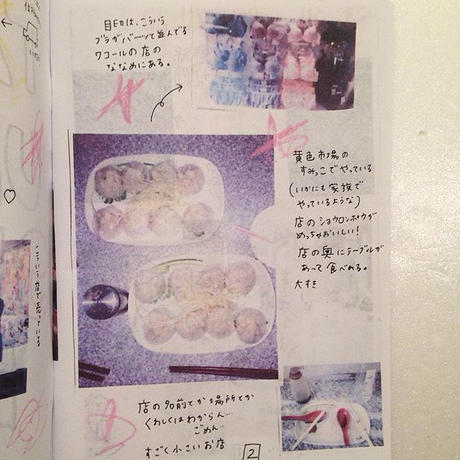 目印は、こういう
ブラがバーッと並んでる
ワコールの店の
ななめにある。
黄色市場の
すみっこでやっている
(いかにも家族で
やっているような)
店のショウロンポウが
めっちゃおいしい!
店の奥にテーブルが
あって食べれる。
大すき
こういう店で売っている
店の名前とか場所とか
くわしくはわからん…
ごめん…
すごく小さいお店
2